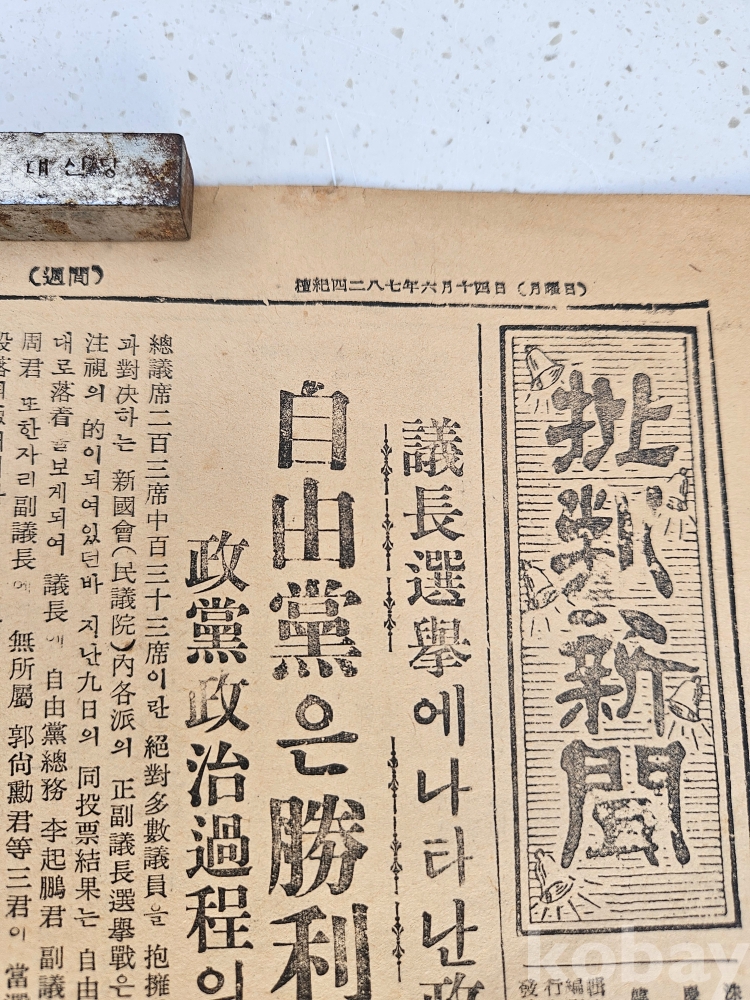 내산당
(週間)
檀紀四二八七年六月十四日(月曜日)
批判新聞
發行編輯
議長選擧에나타난政
自由黨은勝利
政黨政治過程의
總議席二百三席中百三十三席이란 絕對多數議員을 抱擁
과對决하는 新國會(民議院)內各派의 正副議長選擧戰은
注視의 的이되여있던바 지난九日의 同投票結果는 自由
대로落着을보게되여 議長에 自由黨總務 李起鵬君 副議
周君 또한자리副議長에 無所屬 郭尙勳君等三君이 當選
kobay